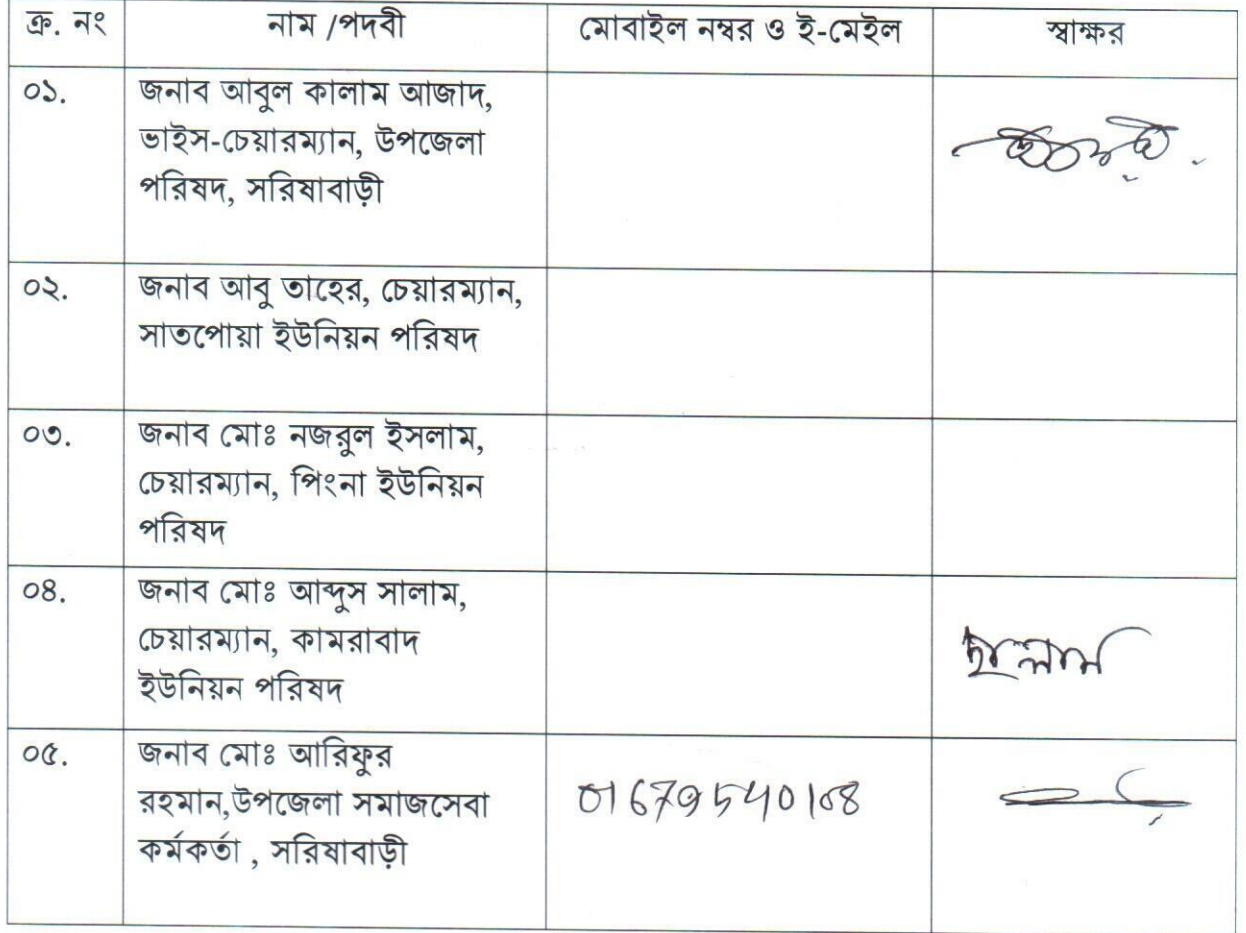 ক্র. নং নাম /পদবী মোবাইল নম্বর ও ই-মেইল স্বাক্ষর
০১. জনাব আবুল কালাম আজাদ,
ভাইস-চেয়ারম্যান, উপজেলা
পরিষদ, সরিষাবাড়ী
০২. জনাব আবু তাহের, চেয়ারম্যান,
সাতপোয়া ইউনিয়ন পরিষদ
০৩. জনাব মোঃ নজরুল ইসলাম,
চেয়ারম্যান, পিংনা ইউনিয়ন
পরিষদ
০৪. জনাব মোঃ আব্দুস সালাম,
চেয়ারম্যান, কামরাবাদ
ইউনিয়ন পরিষদ
০৫. জনাব মোঃ আরিফুর
রহমান,উপজেলা সমাজসেবা 01679540108
কর্মকর্তা , সরিষাবাড়ী